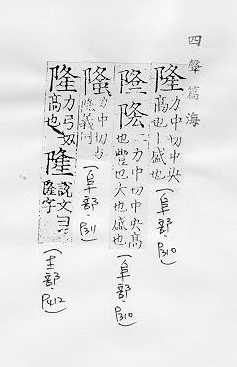 四聲篇海
隆 力中切中央
高也丨盛也 (阜部.P310)
二力中切中央高
也豐也大也盛也 (阜部.P310)
力中切
義同 (阜部.P311)
隆 力弓切
高也
說文
隆字 (P412)